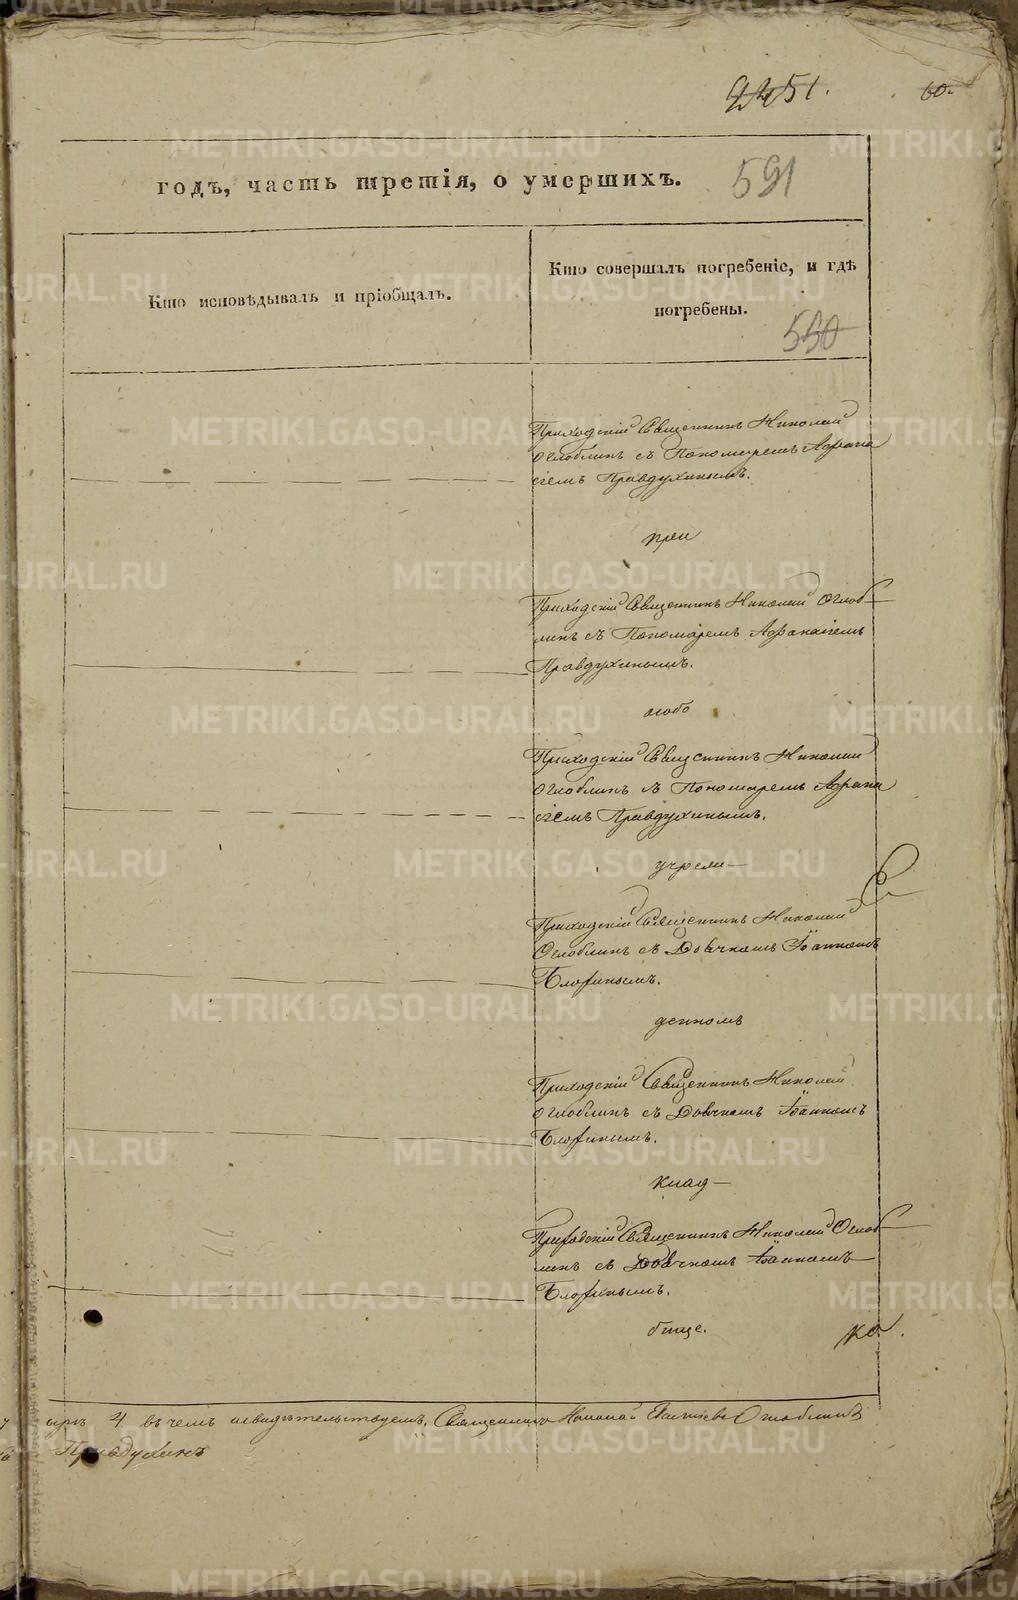 2451.
60.
годъ, часть третія, о умершихъ.
591
Кто исповѣдывалъ и пріобщалъ.
Кто совершалъ погребеніе, и гдѣ
погребены.
590
Приходскій Священникъ Николай
Оглоблинъ съ Пономаремъ Афана
сіемъ Правдухинымъ.
при
Приходскій Священникъ Николай Оглоб-
линъ съ Пономаремъ Афанасіемъ
Правдухинымъ.
особо
Приходскій Священникъ Николай
Оглоблинъ съ Пономаремъ Афана
сіемъ Правдухинымъ.
учреж-
Приходскій Священникъ Николай
Оглоблинъ съ Дьячкомъ Іоанномъ
денномъ
Приходскій Священникъ Николай
Оглоблинъ съ Дьячкомъ Іоанномъ
клад-
Приходскій Священникъ Николай Оглоб-
линъ съ Дьячкомъ Іоанномъ
бище.
4 въ чемъ и свидѣтельствуемъ, Священникъ Николай Оглоблинъ
Правдухинъ
METRIKI.GASO-URAL.RU